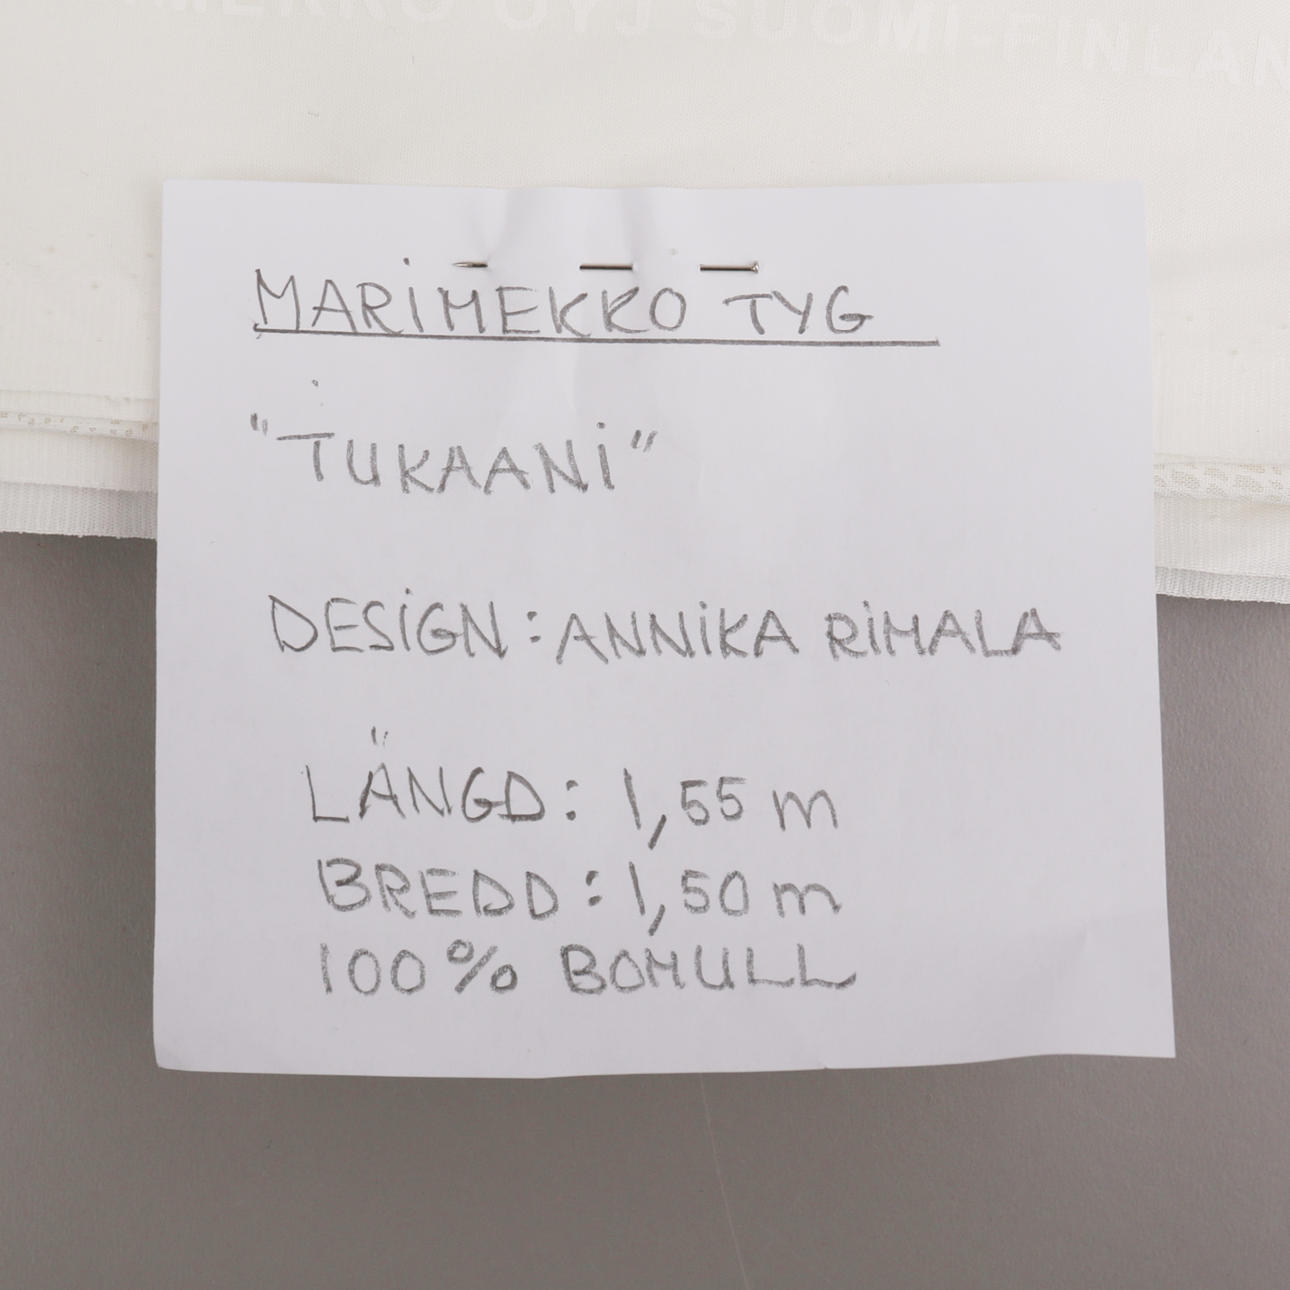 MERKO OYJ SUOMI-FINLAN
MARIMEKKO TYG
"TUKAANI"
DESIGN: ANNIKA RIMALA
LÄNGD: 1,55 m
BREDD: 1,50 m
100% BOMULL